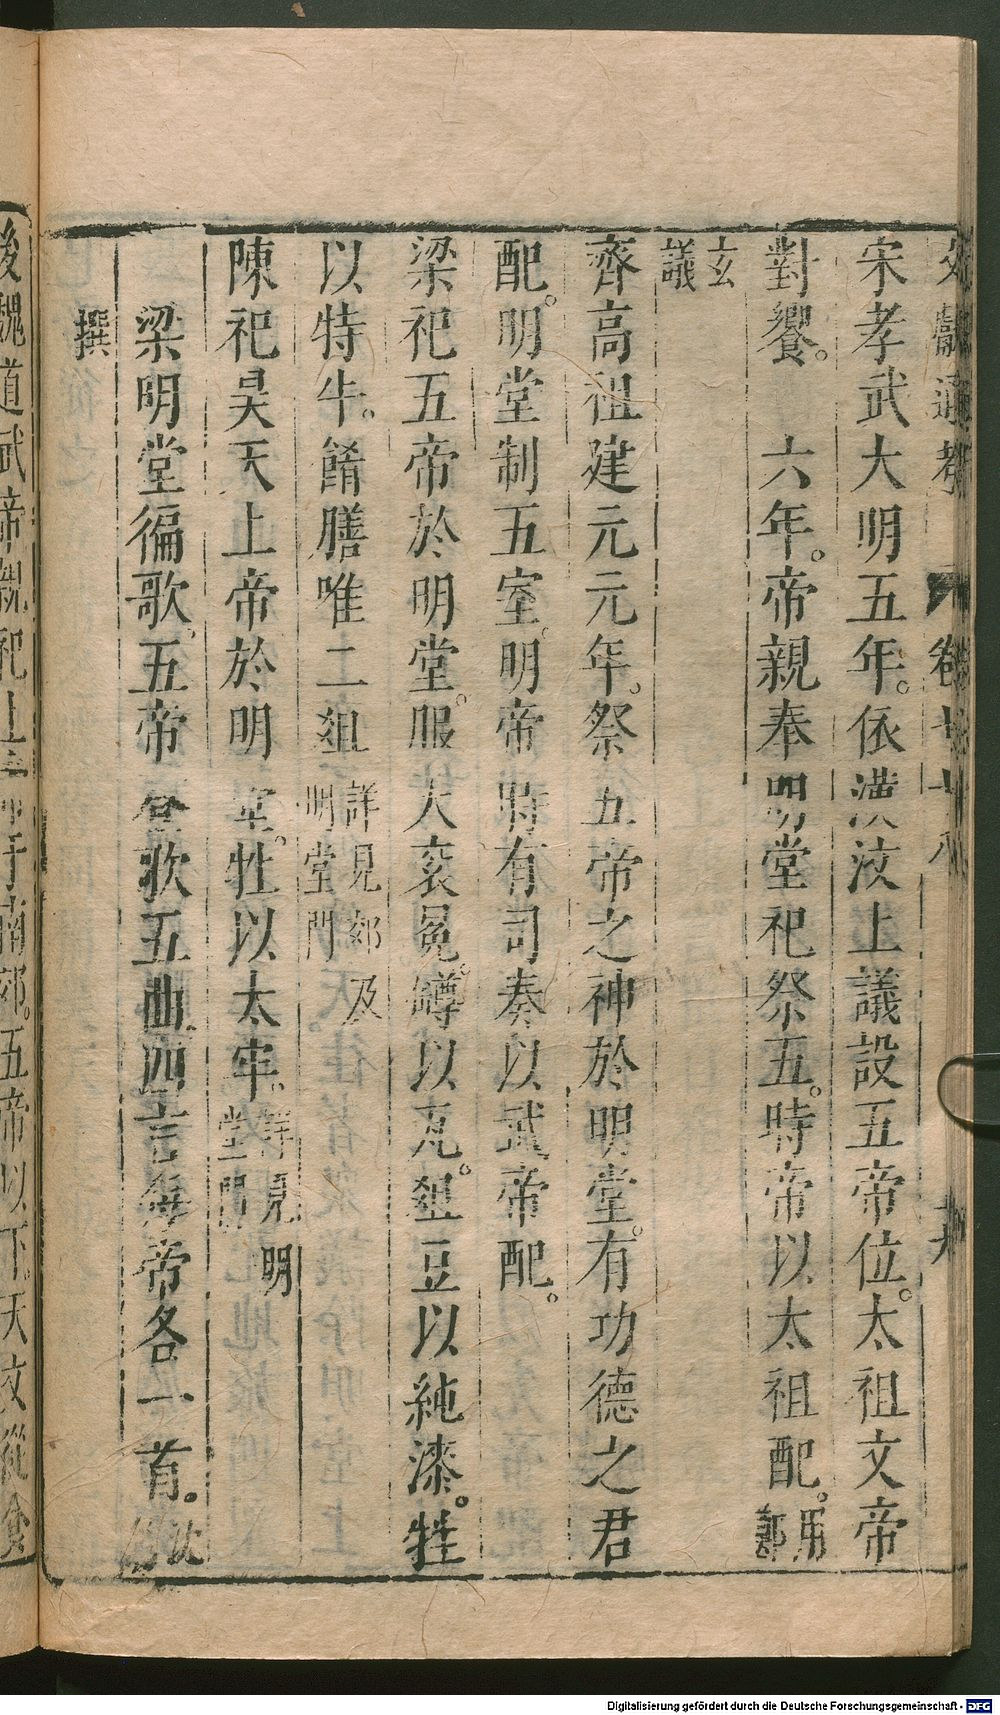 文獻通考 卷七十八
宋孝武大明五年。依漢汶上議設五帝位。太祖文帝
對饗。　六年。帝親奉明堂祀祭五。時帝以太祖配。用鄭
玄議
齊高祖建元元年。祭五帝之神於明堂。有功德之君
配。明堂制五室。明帝時有司奏以武帝配。
梁祀五帝於明堂。服大裘冕。罇以瓦。俎豆以純漆。牲
以特牛。餚膳唯二俎詳見郊及明堂門
陳祀昊天上帝於明堂。牲以太牢。詳見明堂門
梁明堂徧歌。五帝登歌五曲。四言每帝各一首。沈約
撰
後魏道武帝親祀上帝于南郊。五帝以下。天文從食
Digitalisierung gefördert durch die Deutsche Forschungsgemeinschaft - DFG